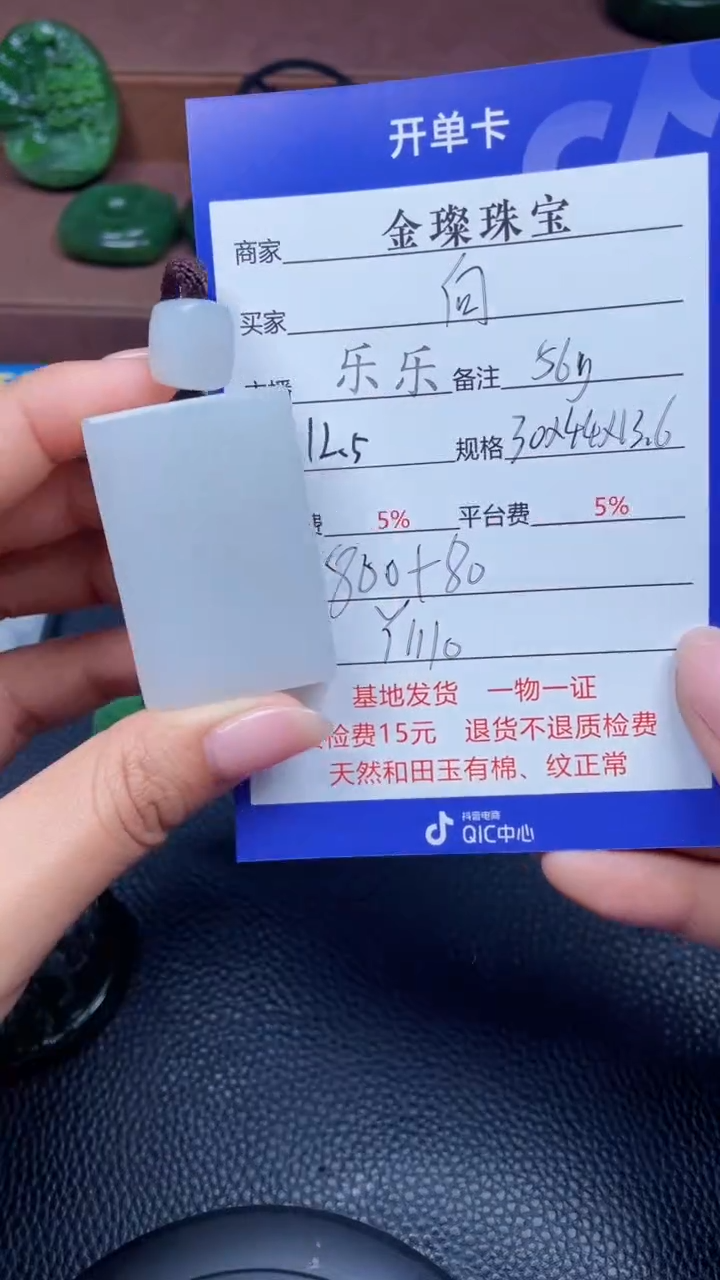 开单卡
商家 金璨珠宝
买家 向
主播 乐乐 备注 56g
12.5 规格 30x44x13.6
费 5% 平台费 5%
800+80
¥1110
基地发货 一物一证
检费15元 退货不退质检费
天然和田玉有棉、纹正常
抖音电商
QIC中心